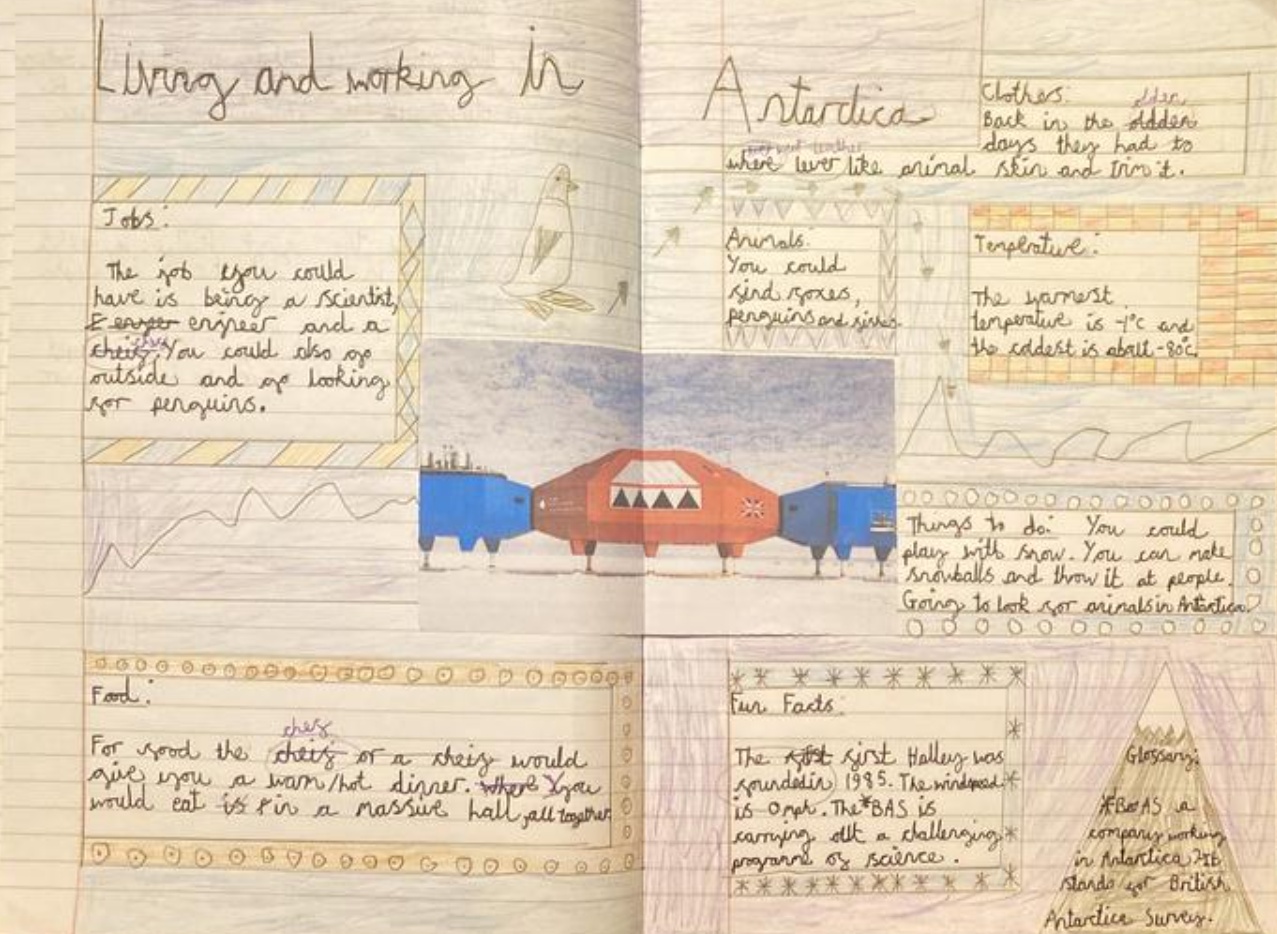 Living and working in
Antarctica
Clothes:
olden
Back in the oldden
days they had to
leather
where lever like animal skin and trim it.
Jobs:
The job you could
have is being a scientist,
engineer and a
chef
cheif. You could also go
outside and go looking
for penguins.
Animals:
You could
find foxes,
penguins and fishes.
Temperature:
The warmest
temperature is -1°c and
the coldest is about -80°c.
Things to do: You could
play with snow. You can make
snowballs and throw it at people.
Going to look for animals in Antartica.
Food:
chef
For food the cheif or a cheif would
give you a warm/hot dinner. where You
would eat is in a massive hall, all together
Fun Facts:
The first Halley was
founded in 1985. The windspeed
is 0mph. The *BAS is
carrying out a challenging
programe of science.
Glossary:
*BAS a
company working
in Antartica. It
stands for British
Antarctica Survey.